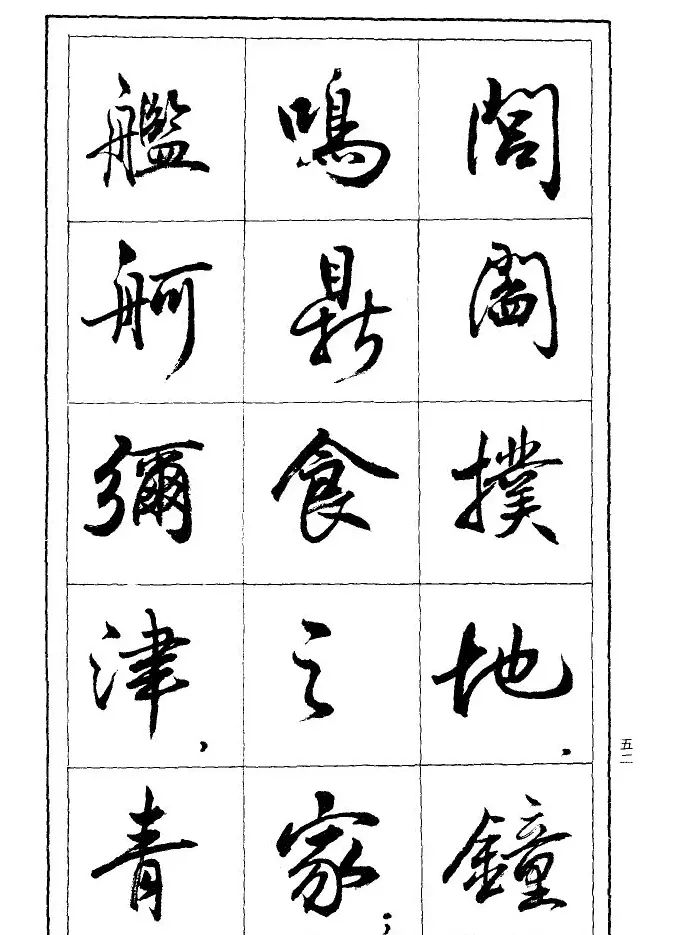 閭閻撲地，鐘
鳴鼎食之家；
艦舸彌津，青
五二